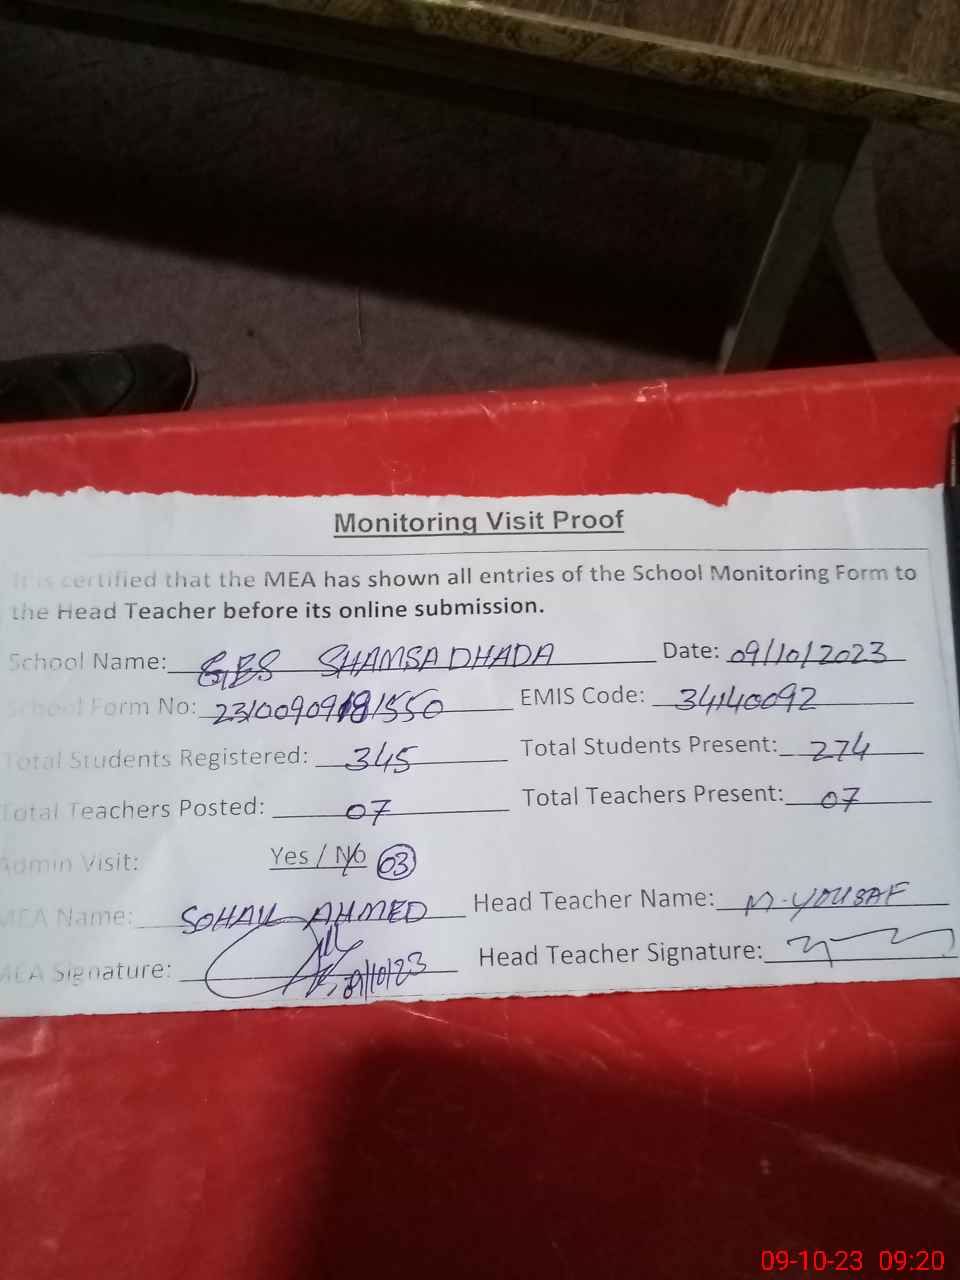 Monitoring Visit Proof
It is certified that the MEA has shown all entries of the School Monitoring Form to
the Head Teacher before its online submission.
School Name: GES SHAMSA DHADA Date: 09/10/2023
School Form No: EMIS Code: 34140092
Total Students Registered: 345 Total Students Present: 274
Total Teachers Posted: 07 Total Teachers Present: 07
Admin Visit: Yes / No 03
MEA Name: SOHAIL AHMED Head Teacher Name: M-YOUSAF
MEA Signature: 09/10/23 Head Teacher Signature:
09-10-23 09:20